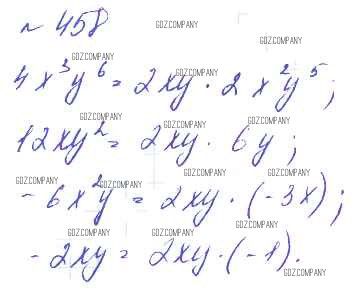 № 458
GDZCOMPANY
GDZCOMPANY
GDZCOMPANY
GDZCOMPANY
4x³y⁶ = 2xy · 2x²y⁵;
GDZCOMPANY
GDZCOMPANY
12xy² = 2xy · 6y;
GDZCOMPANY
GDZCOMPANY
GDZCOMPANY
GDZCOMPANY
-6x²y = 2xy · (-3x);
GDZCOMPANY
GDZCOMPANY
GDZCOMPANY
-2xy = 2xy · (-1).
GDZCOMPANY